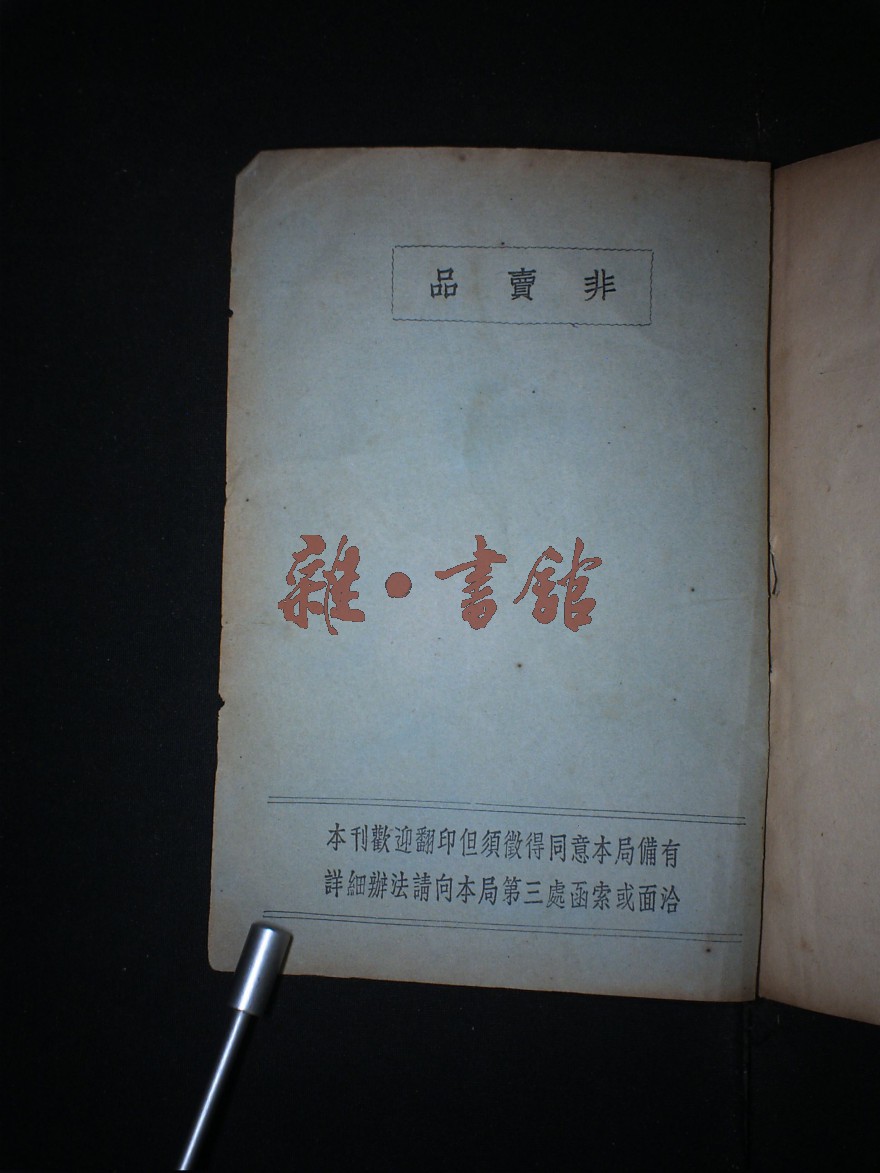 非賣品
雜·書館
本刊歡迎翻印但須徵得同意本局備有
詳細辦法請向本局第三處函索或面洽